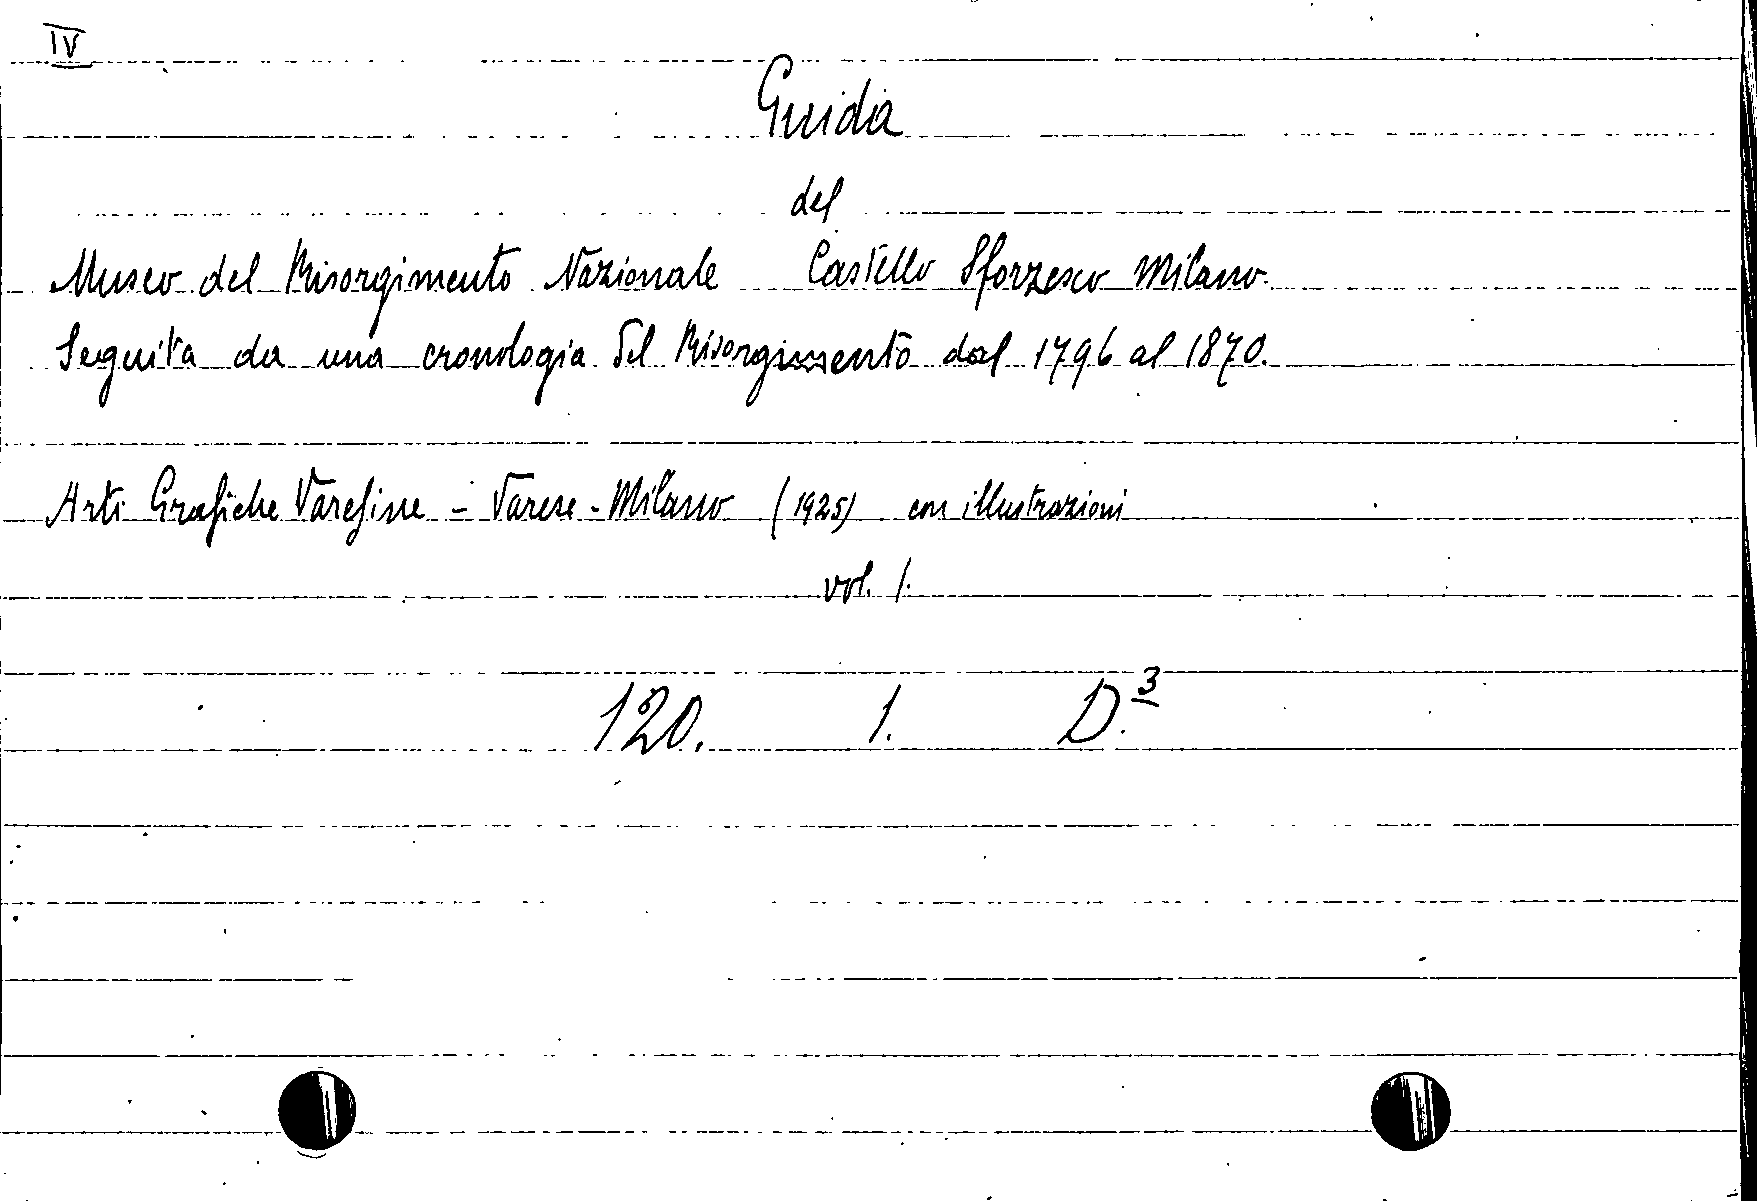 IV
Guida
del
Museo del Risorgimento Nazionale Castello Sforzesco Milano.
Seguita da una cronologia del Risorgimento dal 1796 al 1870.
Arti Grafiche Varesine - Varese - Milano (1925) con illustrazioni
vol. 1.
120. 1. D.³